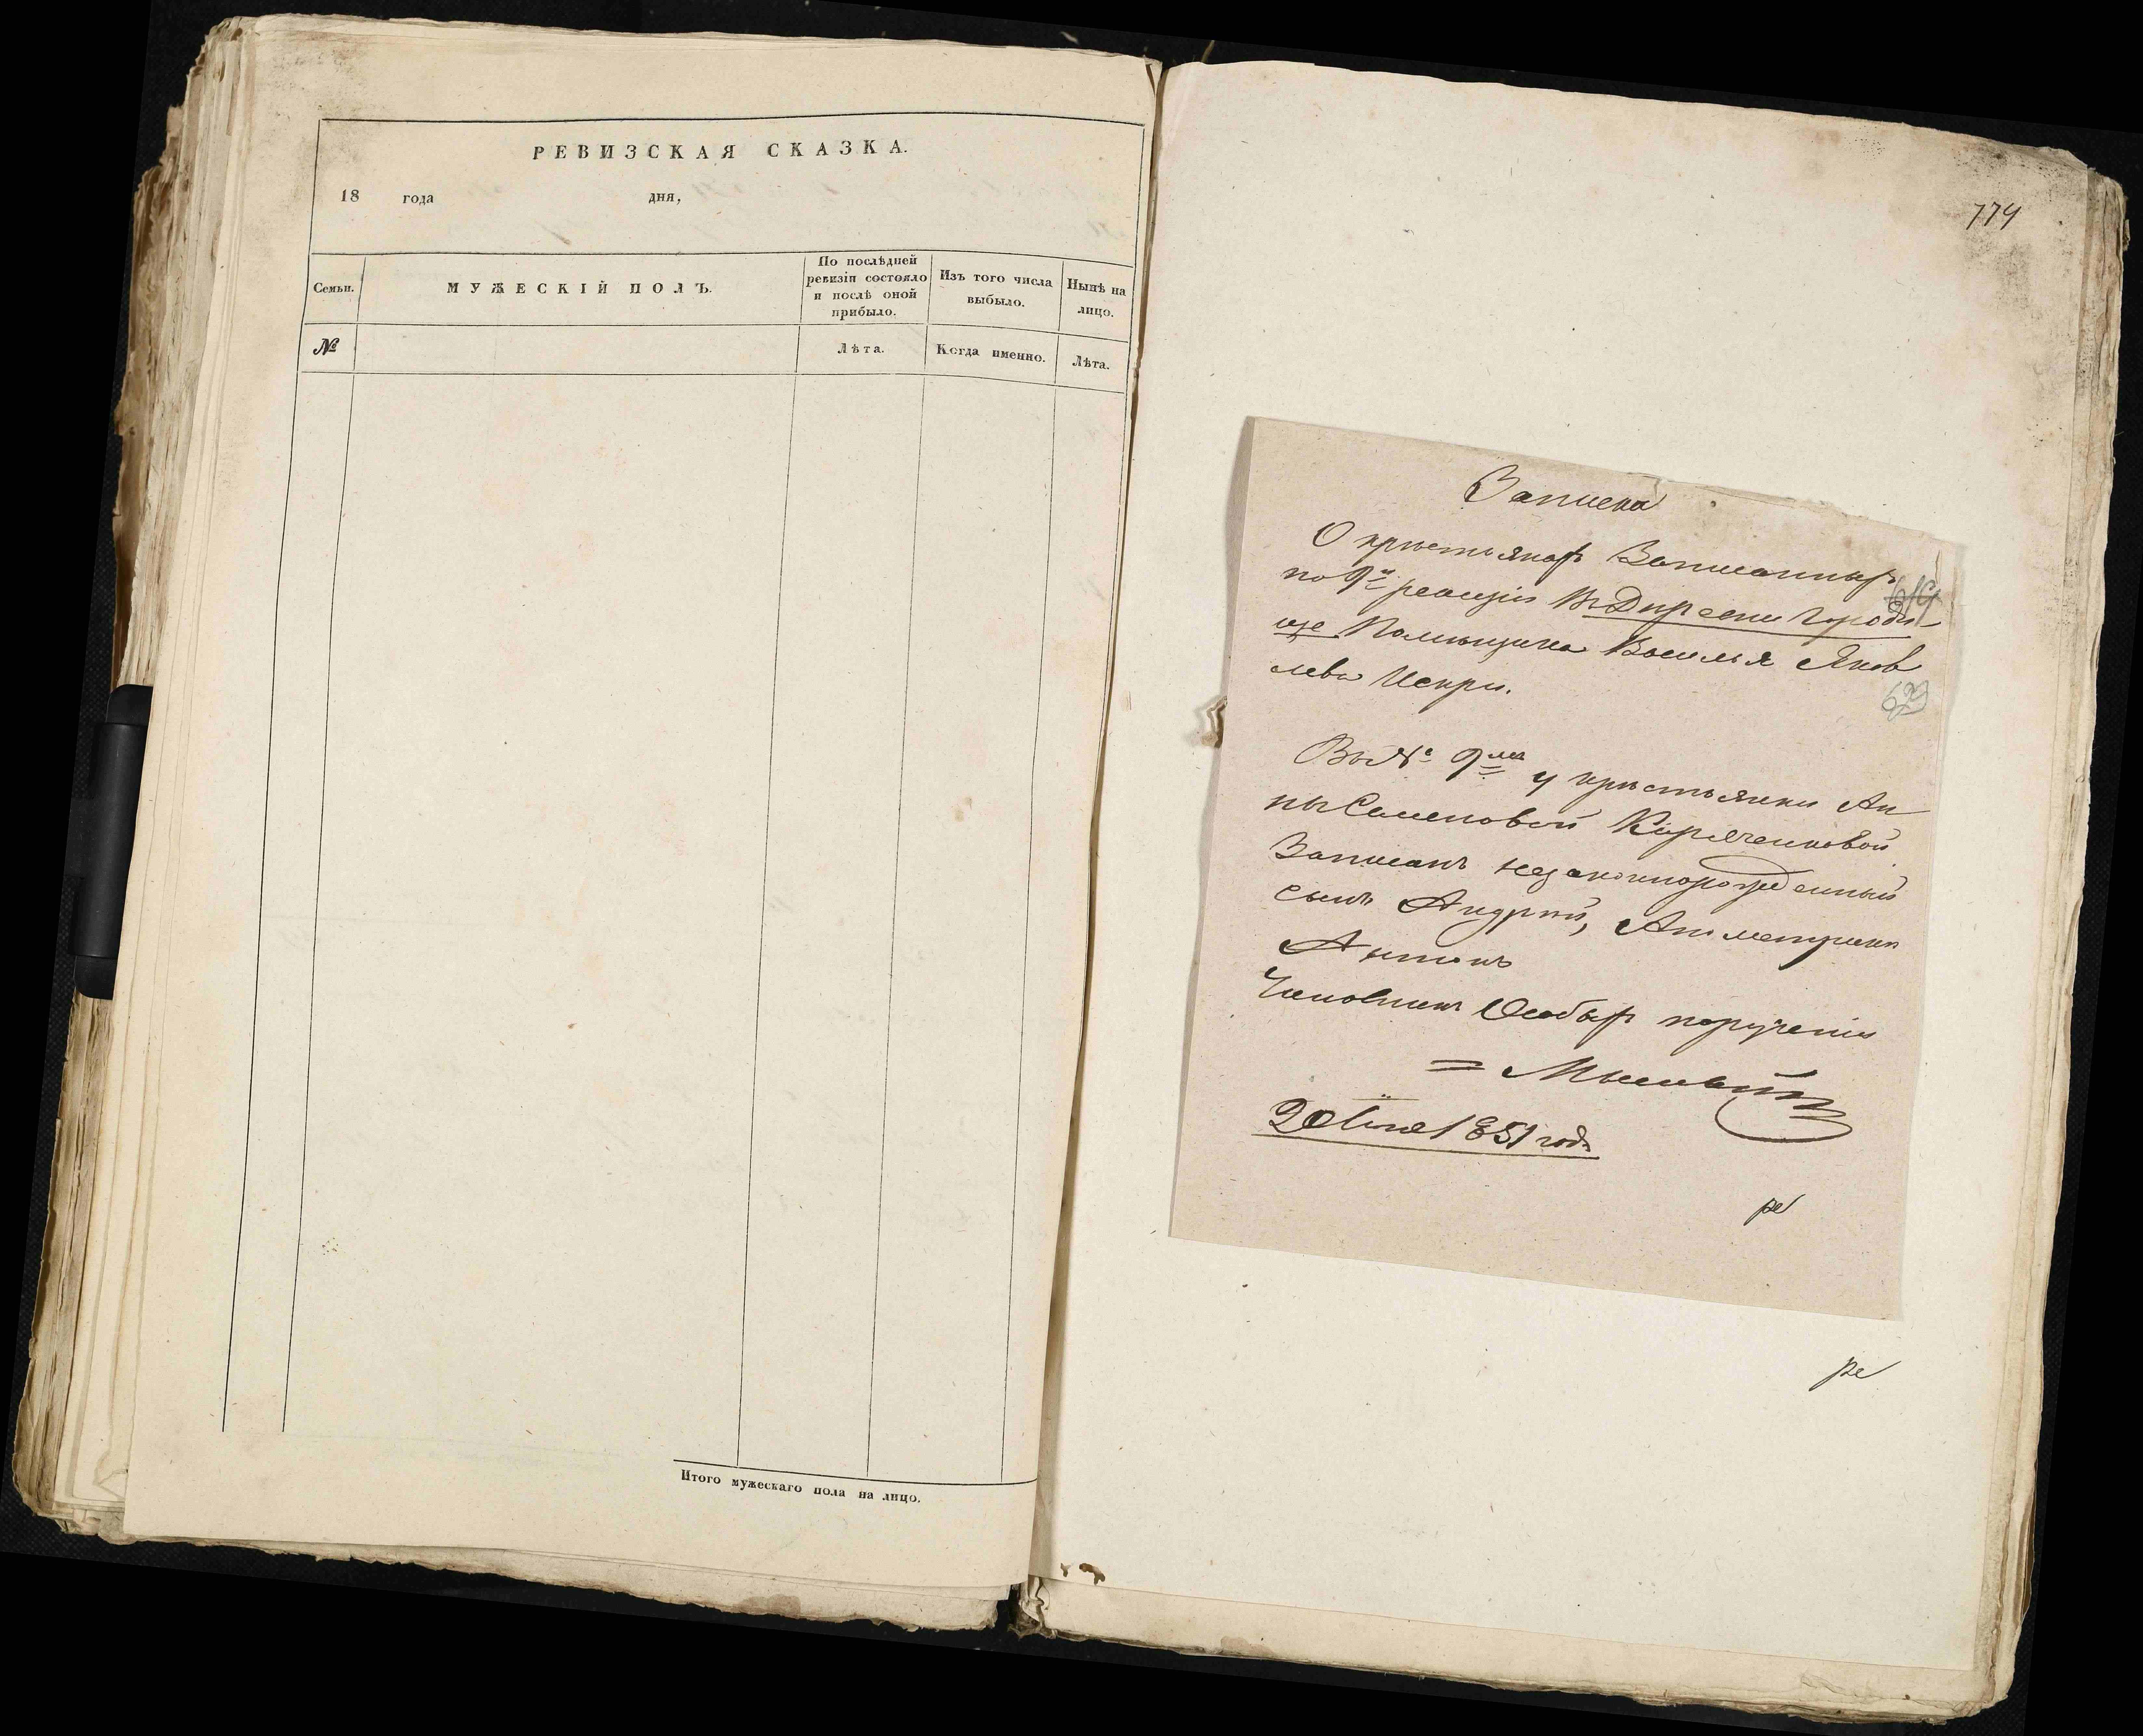 РЕВИЗСКАЯ СКАЗКА.
18 года дня,
Семьи.
МУЖЕСКІЙ ПОЛЪ.
По послѣдней
ревизіи состояло
и послѣ оной
прибыло.
Изъ того числа
выбыло.
Нынѣ на
лицо.
№
Лѣта.
Когда именно.
Лѣта.
Итого мужескаго пола на лицо.
774
Записка
О крестьянахъ Записанныхъ
по 9й ревизіи Въ Дирєвни Городи
619
ще Помѣщика Василья Яков
лева Искры.
629
Въ № 9мъ у крестьянки Ан
ны Семеновой Кириченковой
Записанъ незаконнорожденный
сынъ Андрей, А по метрики
Антонъ
Чиновникъ Особыхъ порученій
1851 года
ре
ре